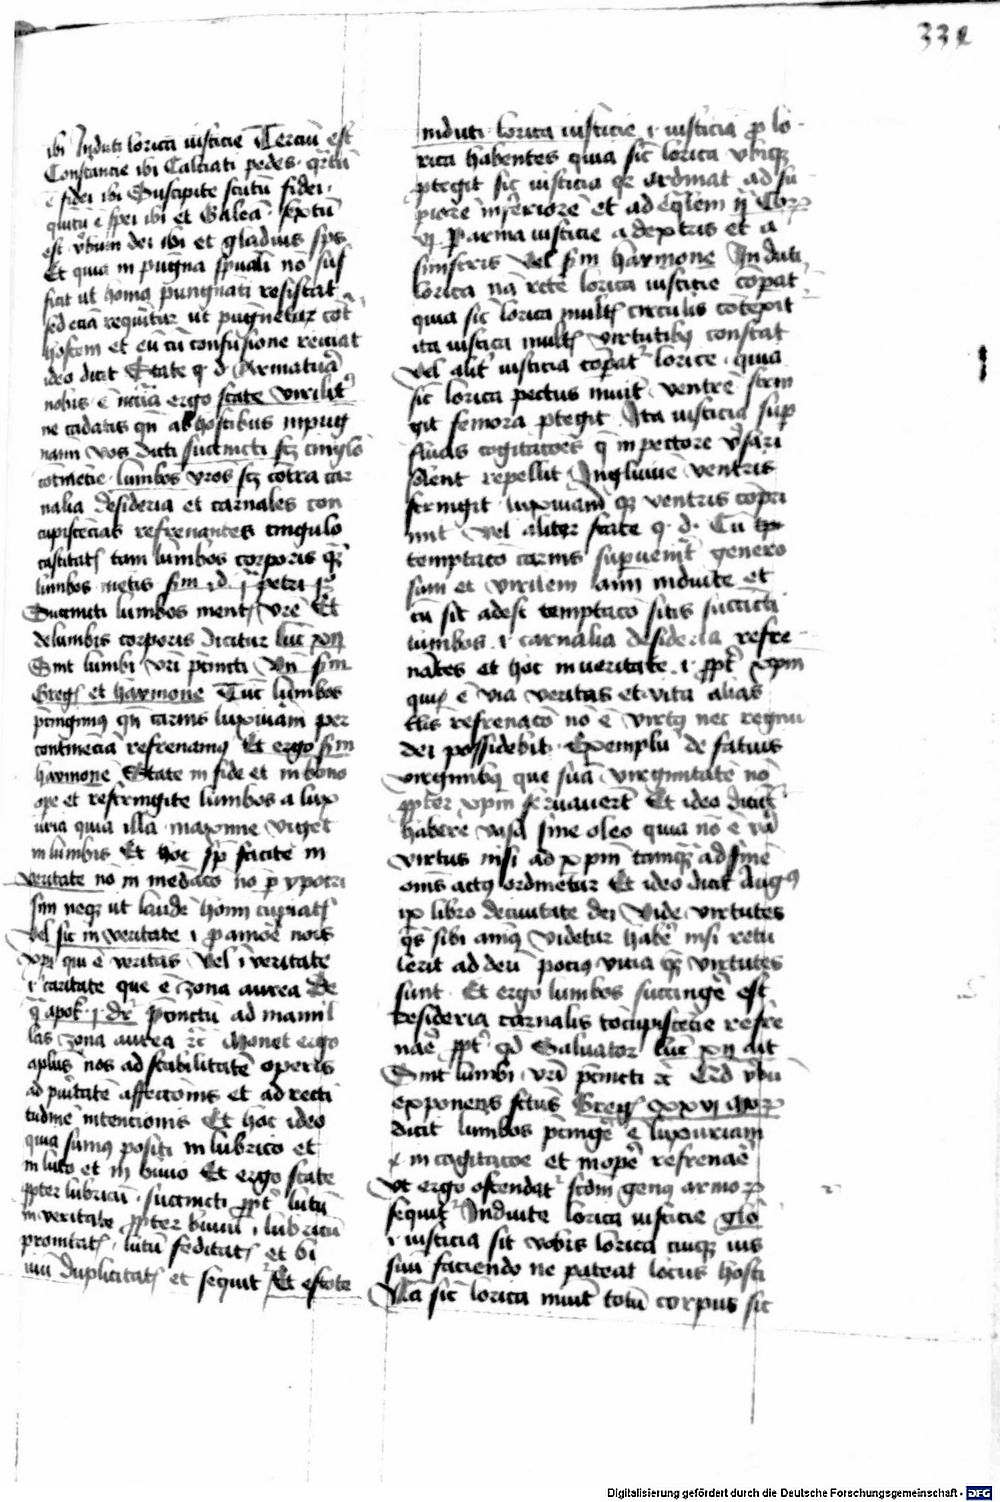 331
ibi Induti lorica iusticie Terciu est
Constancie ibi Calciati pedes qrtu
e fidei ibi Suscipite scutu fidei
quitu e spei ibi et Galea sextu
est vbum dei ibi et gladius sps
Et quia in pugna spuali no suf
ficit ut homo punganti resistat
sed etia requirtur ut pugnetur cot
hostem et eu cu confusione reiciat
ideo dicit State q d Armatura
nobis e ergo state virilit
ne cadatis qn ab hostibus inpug
namini vos dicti succincti scz cingulo
cotinecie lumbos vros scz cotra car
nalia desideria et carnales con
cupiscecias refrenantes cingulo
castitatis tam lumbos corporis qr
lumbos metis sim i petri
Succincti lumbos mentis vre Et
delumbis corporis dicitur luc xii
Sint lumbi vri pcincti Vn sim
Greg et haymone Tuc lumbos
pcingimus qn carnis luxuriam per
continecia refrenamus Et ergo sim
haymone State in fide et in bono
ope et restringite lumbos a lux
uria quia illa maxime viget
in lumbis Et hoc ip facite in
veritate no in medacio no p ypocri
sim neqz ut laude homi cupiatis
vel sic in veritate i p amore nois
xpi qui e veritas vel i veritate
i caritate que e zona aurea De
q apok i dr pcinctu ad mamil
las zona aurea zc Monet ergo
aplus nos ad stabilitate operis
ad puritate affectionis et ad recti
tudine intencionis Et hoc ideo
quia sumus positi in lubrico et
in luto et in biuio Et ergo state
ppter lubricu succincti ppt lutu
in veritate ppter biuiu lubricu
pronitatis lutu feditatis et bi
uiu duplicitatis et sequit Et estote
induti lorica iusticie i iusticia p lo
rica habentes quia sic lorica vbiqz
ptegit sic iusticia qr ordinat ad su
piore inferiore et ad equlem ii Cor
vi P arma iusticie a dextris et a
sinistris Vel sim haymone Induti
lorica na recte lorica iusticie copat
quia sic lorica multis circulis cotexit
ita iusticia multis virtutibus constat
vel alit iusticia copat lorice quia
sic lorica pectus munit ventre strin
git femora ptegit Ita iusticia sup
fluas cogitacoes q in pectore vsari
solent repellit Ingluuie ventris
stringit luxuriam qz ventris copri
mit Vel aliter state q d Cu
temptaco carnis supuenit genero
sum et virilem aim induite et
cu sit adest temptaco sitis succicti
lumbos i carnalia desideria refre
nates et hoc in ueritate i ppt xpm
quis e via veritas et vita alias
refrenaco no e virtus nec regnu
dei possidebit Exemplu de fatuis
virginibus que sua virginitate no
ppter xpm seruauert Et ideo dicut
habere vasa sine oleo quia no e va
virtus nisi ad xpm tamqz ad fine
ois actus ordinetur Et ideo dicit Aug
ix libro deciuitate dei Vide virtutes
qs sibi animus videtur habe nisi retu
lerit ad deu pocius vicia qz virtutes
sunt Et ergo lumbos succingere est
desideria carnalis cocupiscecie refre
nare ppt qd Saluator luc xii ait
Sint lumbi vri pcincti zc Qd vbu
exponens scius Greg xxvi Mor
dicit lumbos pcinge e luxuriam
i in cogitacoe et inope refrenae
Vt ergo ostendat scdm genus armor
sequit Induite lorica iusticie glo
i iusticia sit vobis lorica cuiqz ius
suu faciendo ne pateat locus hosti
Na sic lorica munit totu corpus sic
Digitalisierung gefördert durch die Deutsche Forschungsgemeinschaft - DFG